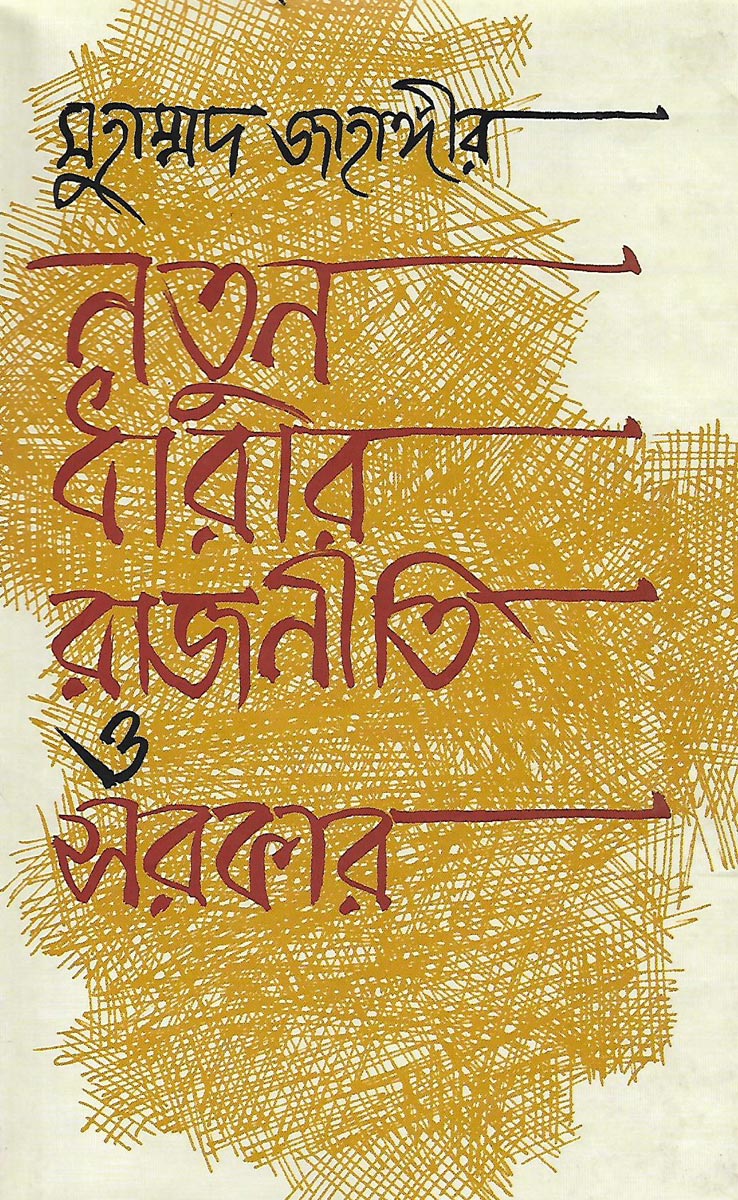 মুহাম্মদ জাহাঙ্গীর
নতুন
ধারার
রাজনীতি
ও
সরকার